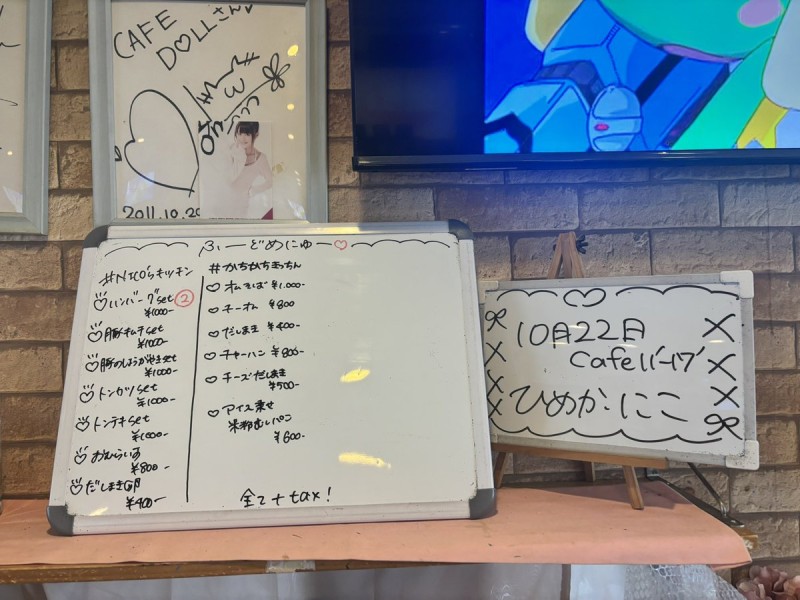 CAFE
DOLLさん♡
2011.10.20
ふーどめにゅー♡
#NICO'sキッチン
♡ハンバーグset ②
¥1000-
♡豚キムチset
¥1000-
♡豚のしょうがやきset
¥1000-
♡トンカツset
¥1000-
♡トンテキset
¥1000-
♡おむらいす
¥800-
♡だしまき卵
¥400-
#かちかちきっちん
♡オムそば ¥1.000-
♡チーオム ¥800
♡だしまき ¥400-
♡チャーハン ¥800-
♡チーズだしまき
¥500-
♡アイス乗せ
米粉蒸しパン
¥600-
全て+tax!
10月22日
Cafe 11'-17'
ひめか・にこ